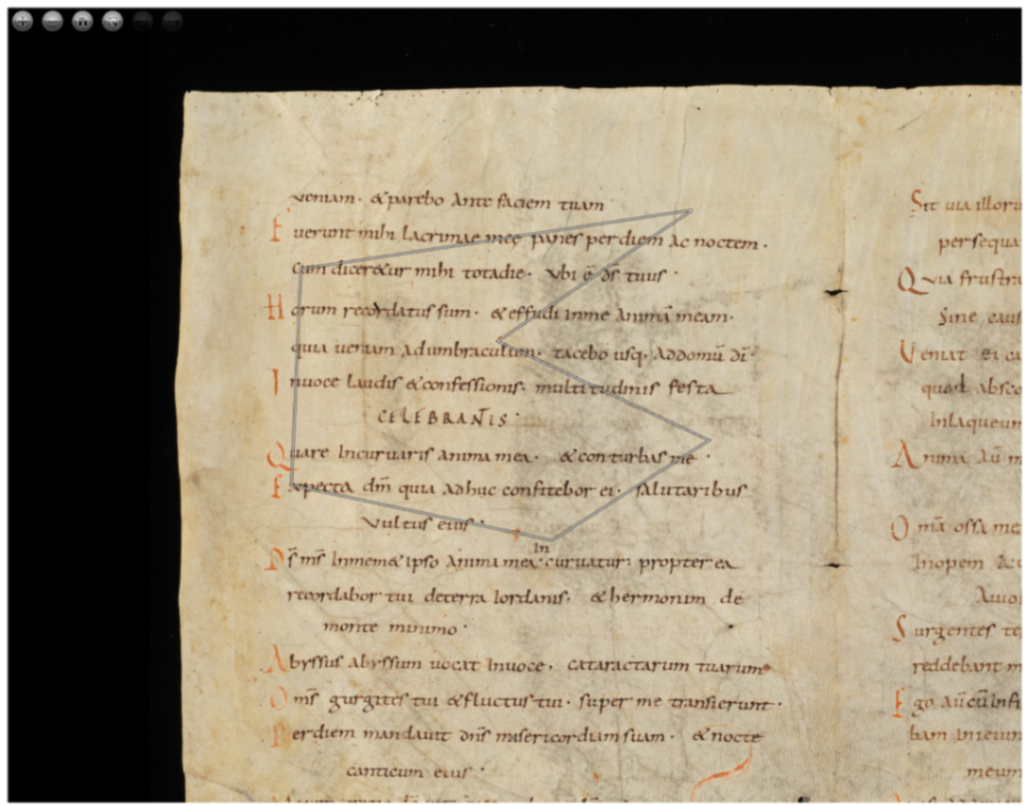 veniam. & parebo Ante faciem tuam
Fuerunt mihi lacrimae meę panes per diem Ac noctem.
cum dicer&ur mihi totadie. Vbi ē d̄s tuus.
Horum recordatus sum. & effudi Inme Animā meam.
quia ueniam Adumbraculum. tacebo usq. Addomū dī.
Inuoce laudis & confessionis. multitudinis festa
CELEBRANTIS.
Quare Incuruaris anima mea. & conturbas me.
Expecta dm̄ quia Adhuc confitebor ei. salutaribus
Vultus eius.
In
D̄s m̄s Inmem& ipso Anima mea curuatur: propterea
recordabor tui deterra Iordanis. & hermonim de
monte minimo.
Abyssus Abyssum uocat Inuoce. cataractarum tuarum
Om̄s gurgites tui & fluctus tui. super me transierunt.
Perdiem mandauit dn̄s misericordiam suam. & nocte
canticum eius.
Sit uia illoru
persequa
Quia frustra
sine caus
Veniat ei ca
quod absco
Inlaqueum
Anima Aū m
Om̄a ossa me
Inopem
Surgentes te
reddebant m
Ego Aū cū
meum